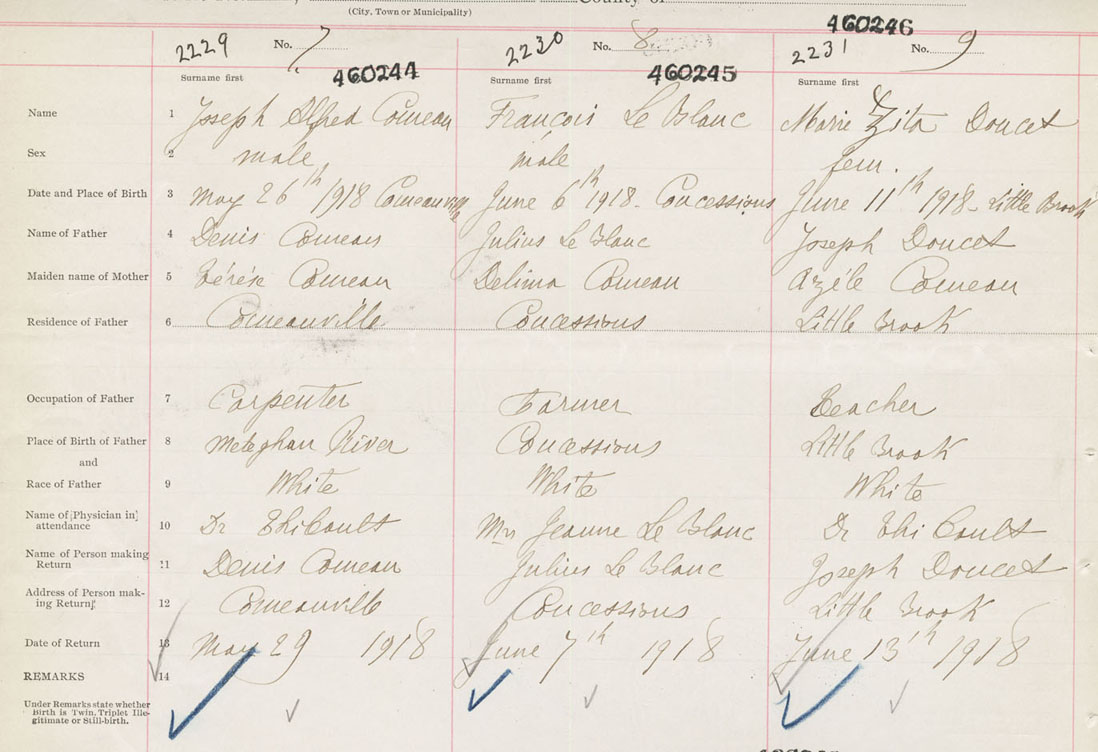 County of
(City, Town or Municipality)
460246
2229 No. 7 2230 No. 8 2231 No. 9
Surname first 460244 Surname first 460245 Surname first
Name 1 Joseph Alfred Comeau Francois Le Blanc Marie Zita Doucet
Sex 2 male male fem.
Date and Place of Birth 3 May 26th 1918 Comeauville June 6th 1918 - Concessions June 11th 1918 - Little Brook
Name of Father 4 Denis Comeau Julius Le Blanc Joseph Doucet
Maiden name of Mother 5 Térése Comeau Delima Comeau Azéle Comeau
Residence of Father 6 Comeauville Concessions Little Brook
Occupation of Father 7 Carpenter Farmer Teacher
Place of Birth of Father 8 Meteghan River Concessions Little Brook
and
Race of Father 9 White White White
Name of [Physician in]
attendance 10 Dr Thibault Mrs Jeanne Le Blanc Dr Thibault
Name of Person making
Return 11 Denis Comeau Julius Le Blanc Joseph Doucet
Address of Person mak-
ing Return 12 Comeauville Concessions Little Brook
Date of Return 13 May 29 1918 June 7th 1918 June 13th 1918
REMARKS 14
Under Remarks state whether
Birth is Twin, Triplet Ille-
gitimate or Still-birth.